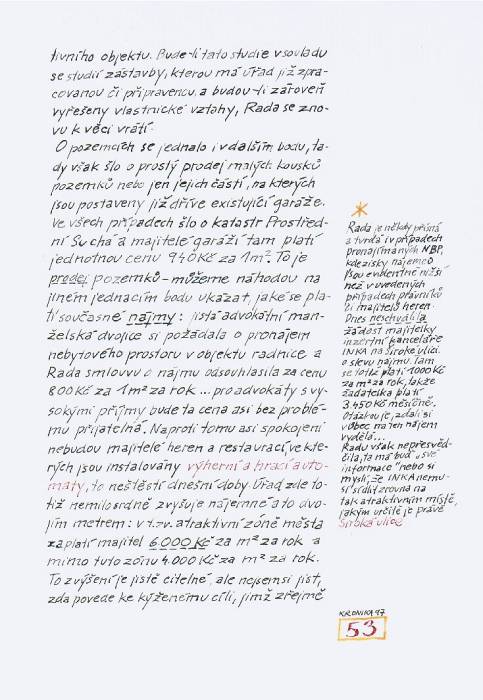 tivního objektu. Bude-li tato studie v souladu
se studií zástavby, kterou má úřad již zpra-
covanou či připravenou a budou-li zároveň
vyřešeny vlastnické vztahy, Rada se zno-
vu k věci vrátí.
O pozemcích se jednalo i v dalším bodu, ta-
dy však šlo o prostý prodej malých kousků
pozemků nebo jen jejich částí, na kterých
jsou postaveny již dříve existující garáže.
Ve všech případech šlo o katastr Prostřed-
ní Suchá a majitelé garáží tam platí
jednotnou cenu 940 Kč za 1m². To je
prodej pozemků - můžeme náhodou na
jiném jednacím bodu ukázat, jaké se pla-
tí současné nájmy: jistá advokátní man-
želská dvojice si požádala o pronájem
nebytového prostoru v objektu radnice a
Rada smlouvu o nájmu odsouhlasila za cenu
800 Kč za 1m² za rok ... pro advokáty s vy-
sokými příjmy bude ta cena asi bez problé-
mu přijatelná. Naproti tomu asi spokojeni
nebudou majitelé heren a restaurací, ve kte-
rých jsou instalovány výherní a hrací auto-
maty, to neštěstí dnešní doby. Úřad zde to-
tiž nemilosrdně zvyšuje nájemné a to dvo-
jím metrem: v t.zv. atraktivní zóně města
zaplatí majitel 6.000 Kč za m² za rok a
mimo tuto zónu 4.000 Kč za m² za rok.
To zvýšení je jistě citelné, ale nejsem si jist,
zda povede ke kýženému cíli, jímž zřejmě
*
Rada je někdy přísná
a tvrdá i v případech
pronajímaných NBP,
kde zisky nájemců
jsou evidentně nižší
než v uvedených
případech právníků
či majitelů heren
Dnes neschválila
žádost majitelky
inzertní kanceláře
INKA na Široké ulici
o slevu nájmu. Tam
se totiž platí 1000 Kč
za m² za rok, takže
žadatelka platí
3.450 Kč měsíčně.
Otázkou je, zdali si
vůbec na ten nájem
vydělá...
Radu však nepřesvěd-
čila, ta má buď "své
informace" nebo si
myslí, že INKA nemu-
sí sídlit zrovna na
tak atraktivním místě,
jakým určitě je právě
Široká ulice
KRONIKA 97
53